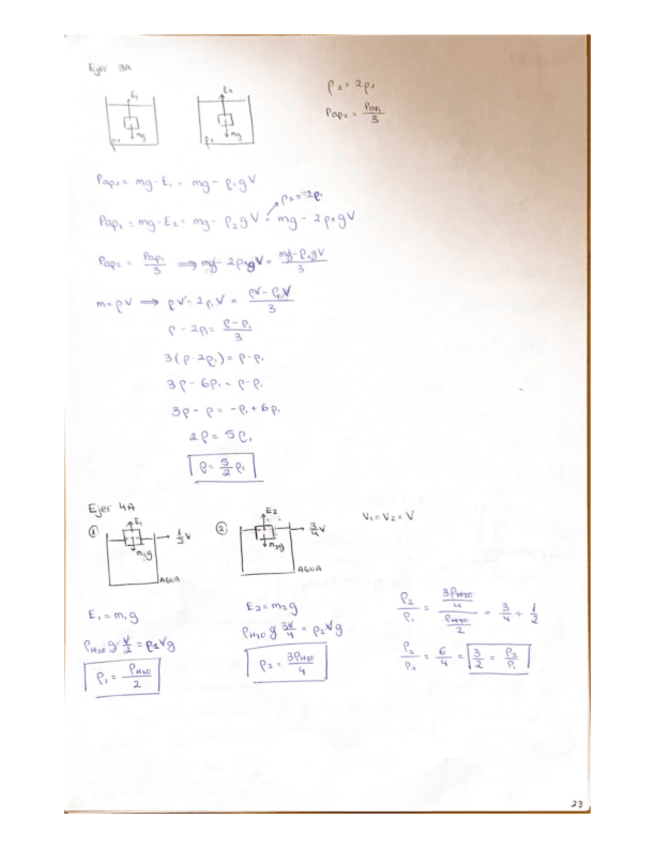 Ejer 3A
E₁
mg
ρ₁
E₂
mg
ρ₂
ρ₂ = 2ρ₁
Pap₂ = Pap₁/3
Pap₁ = mg - E₁ = mg - ρ₁gV
ρ₂ = 2ρ₁
Pap₂ = mg - E₂ = mg - ρ₂gV = mg - 2ρ₁gV
Pap₂ = Pap₁/3 ⟹ mg - 2ρ₁gV = (mg - ρ₁gV)/3
m = ρV ⟹ ρV - 2ρ₁V = (ρV - ρ₁V)/3
ρ - 2ρ₁ = (ρ - ρ₁)/3
3(ρ - 2ρ₁) = ρ - ρ₁
3ρ - 6ρ₁ = ρ - ρ₁
3ρ - ρ = -ρ₁ + 6ρ₁
2ρ = 5ρ₁
ρ = 5/2 ρ₁
Ejer 4A
① E₁ → 1/2 V
m₁g
AGUA
② E₂ → 3/4 V
m₂g
AGUA
V₁ = V₂ = V
E₁ = m₁g
ρH₂O g V/2 = ρ₁Vg
ρ₁ = ρH₂O/2
E₂ = m₂g
ρH₂O g 3V/4 = ρ₂Vg
ρ₂ = 3ρH₂O/4
ρ₂/ρ₁ = (3ρH₂O/4)/(ρH₂O/2) = 3/4 ÷ 1/2
ρ₂/ρ₁ = 6/4 = 3/2 = ρ₂/ρ₁
23